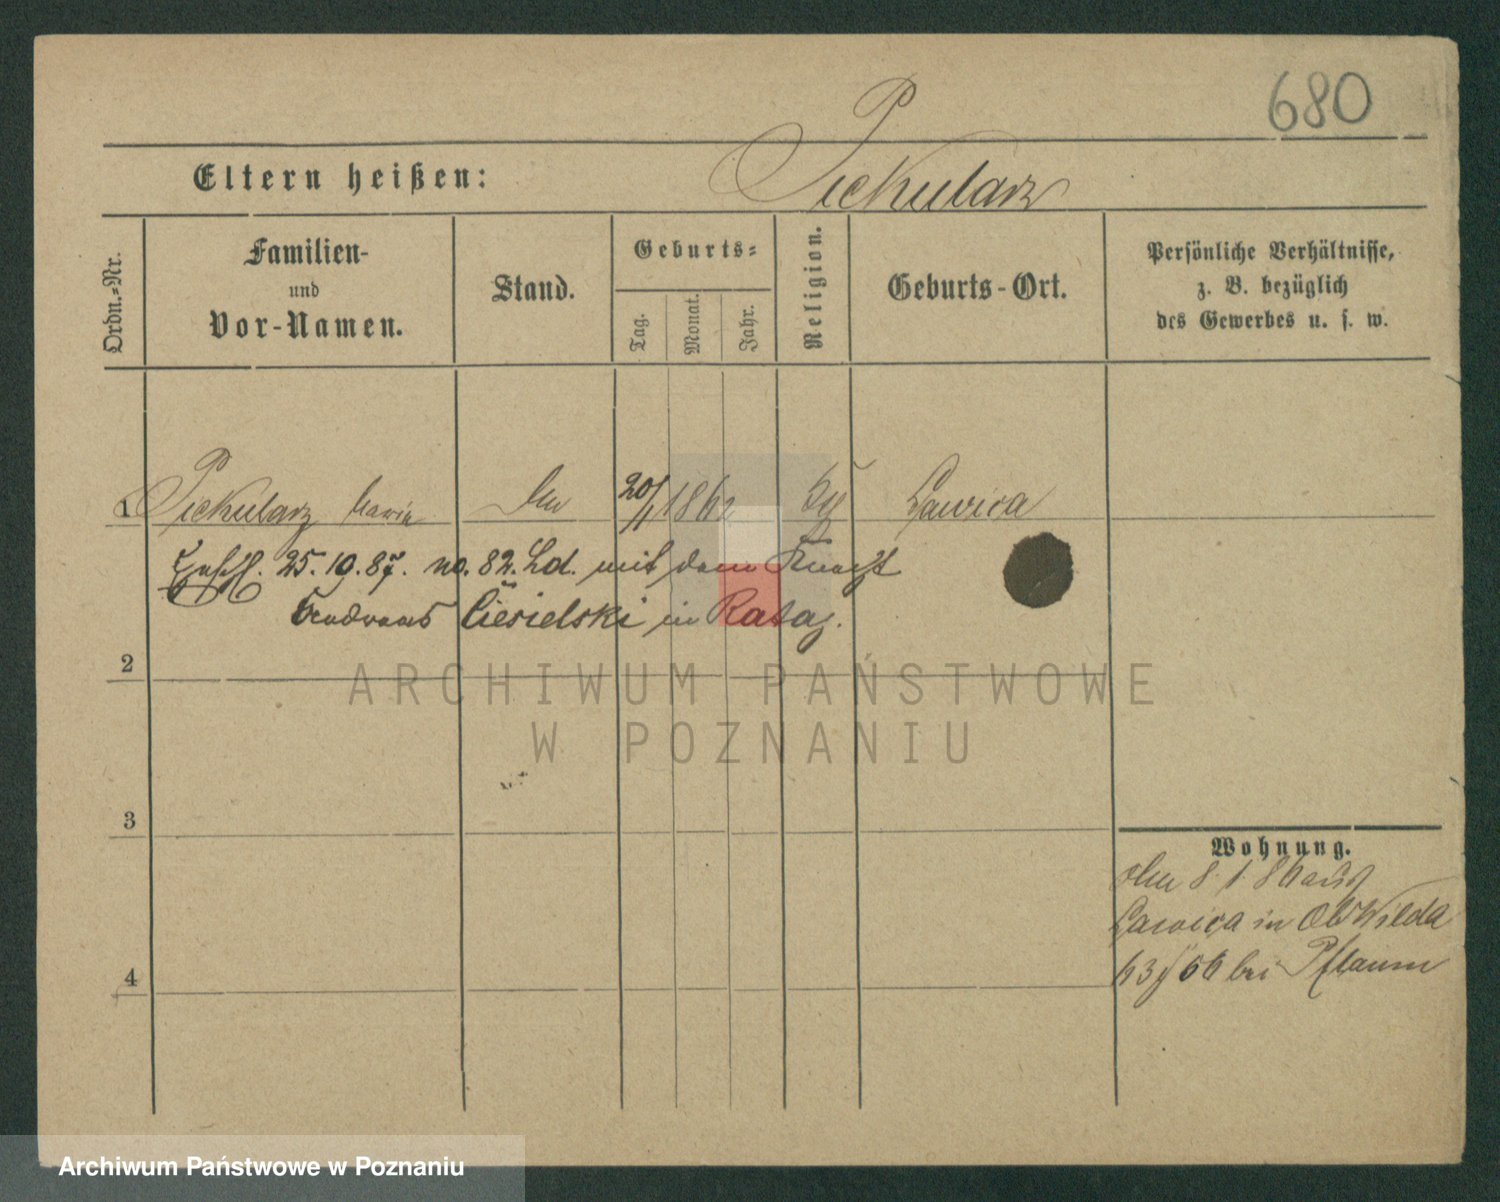 680
Eltern heißen: Piekularz
Ordn.-Nr.
Familien-
und
Vor-Namen.
Stand.
Geburts-
Tag.
Monat.
Jahr.
Religion.
Geburts-Ort.
Persönliche Verhältnisse,
z. B. bezüglich
des Gewerbes u. s. w.
1 Piekularz Maria 20/ 1862 Lawica
25. 10. 87. no. 82. Ld. mit dem Knecht
Andreas Ciesielski in Rataj.
2
ARCHIWUM PAŃSTWOWE
W POZNANIU
3
4
Wohnung.
8 1 86 aus
Lawica in Ob Wilda
bei Pflaum
Archiwum Państwowe w Poznaniu